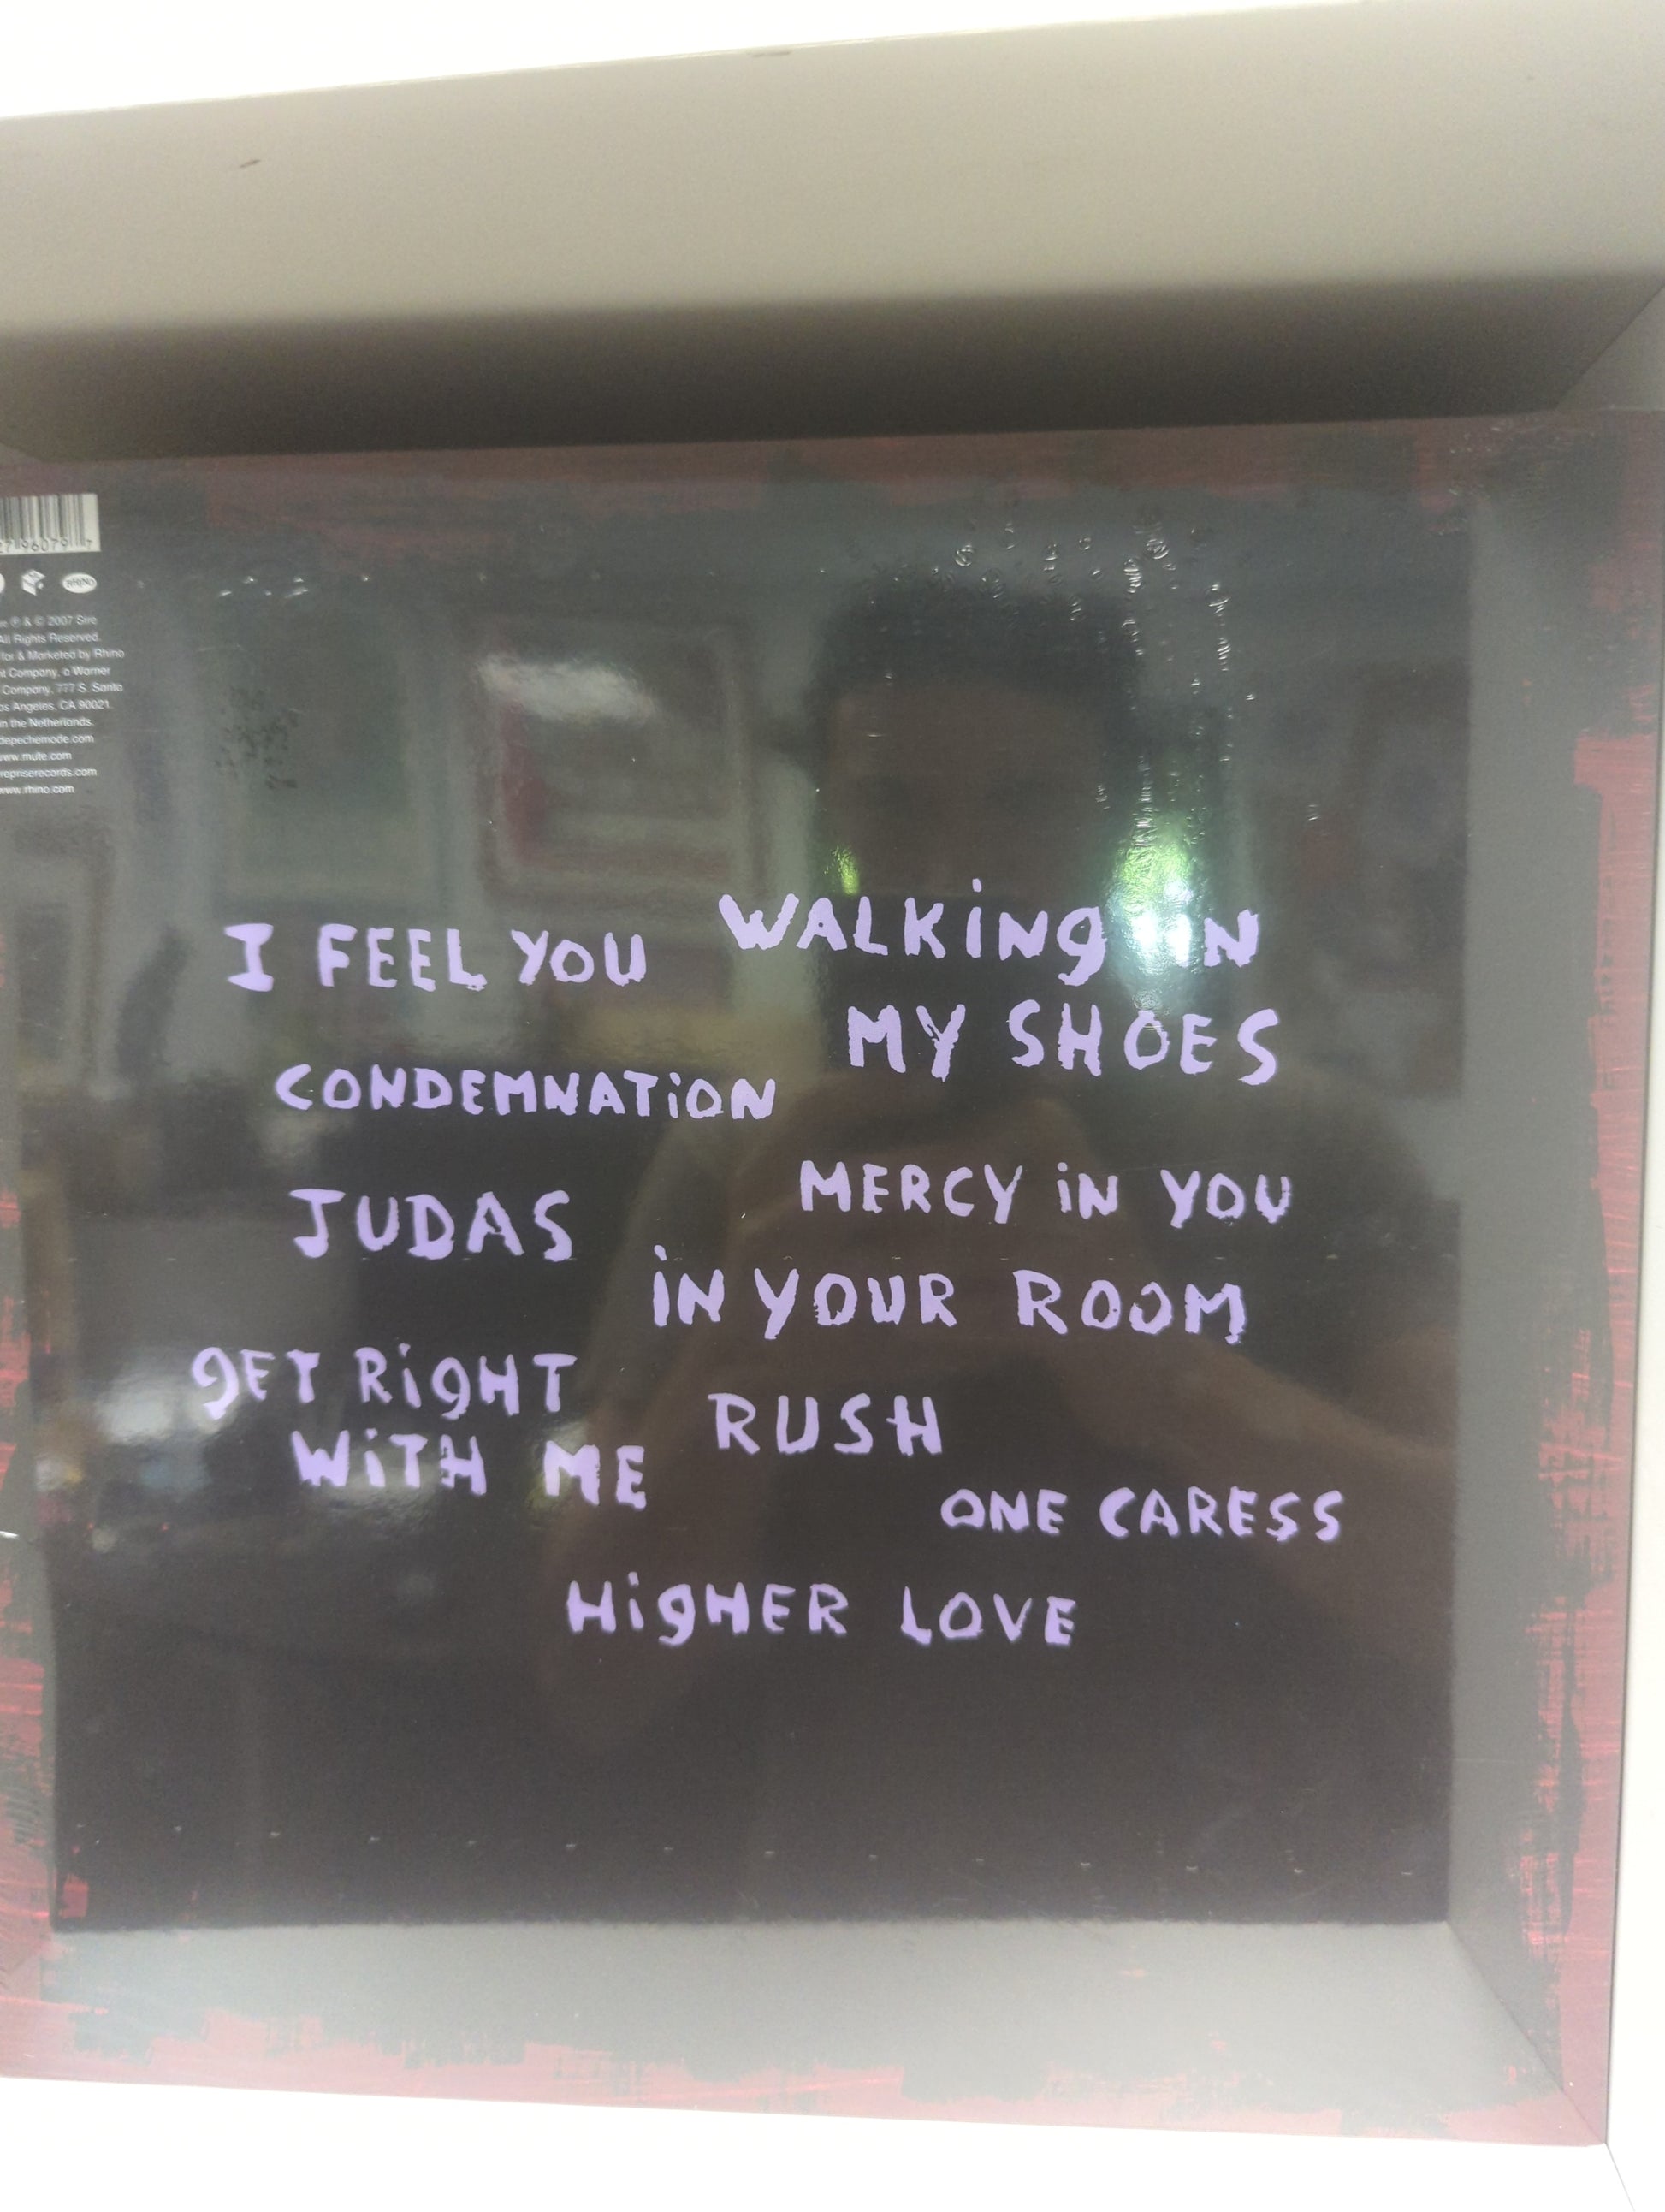 7 96079 7
RHINO
℗ & © 2007 Sire
All Rights Reserved.
for & Marketed by Rhino
Company, a Warner
Company, 777 S. Santa
Angeles, CA 90021.
in the Netherlands.
depechemode.com
www.mute.com
repriserecords.com
www.rhino.com
I FEEL YOU
WALKING IN
MY SHOES
CONDEMNATION
MERCY IN YOU
JUDAS
IN YOUR ROOM
GET RIGHT
WITH ME
RUSH
ONE CARESS
HIGHER LOVE